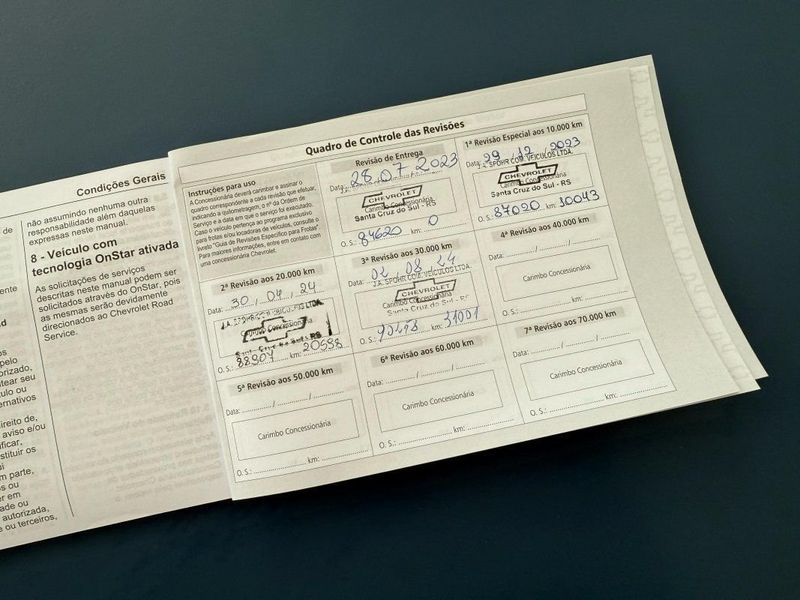 Condições Gerais
não assumindo nenhuma outra
responsabilidade além daquelas
expressas neste manual.
8 - Veículo com
tecnologia OnStar ativada
As solicitações de serviços
descritas neste manual podem ser
solicitados através do OnStar, pois
as mesmas serão devidamente
direcionados ao Chevrolet Road
Service.
de
ente
d
os
pelo
orizado,
tear seu
tulo ou
ernativos
ireito de,
aviso e/ou
ficar,
nstituir os
ui
m parte,
s ou
er em
ade ou
autorizada,
e ou terceiros,
Quadro de Controle das Revisões
Instruções para uso
A Concessionária deverá carimbar e assinar o
quadro correspondente a cada revisão que efetuar,
indicando a quilometragem, o nº da Ordem de
Serviço e a data em que o serviço foi executado.
Caso o veículo pertença ao programa exclusivo
para frotas e/ou locadoras de veículos, consulte o
livreto "Guia de Revisões Específico para Frotas"
Para maiores informações, entre em contato com
uma concessionária Chevrolet.
Revisão de Entrega
Data: 28.07.2023
CHEVROLET
Carimbo Concessionária
Santa Cruz do Sul - RS
O. S.: 84620 km: 0
1ª Revisão Especial aos 10.000 km
Data: 29.12.2023
J.A. SPOHR COM. VEÍCULOS LTDA.
CHEVROLET
Carimbo Concessionária
Santa Cruz do Sul - RS
O. S.: 87020 km: 10043
2ª Revisão aos 20.000 km
Data: 30 / 04 / 24
J.A. SPOHR COM. VEÍCULOS LTDA.
Carimbo Concessionária
Santa Cruz do Sul - RS
O. S.: 88907 km: 20598
3ª Revisão aos 30.000 km
Data: 02 / 08 / 24
J.A. SPOHR COM. VEÍCULOS LTDA.
CHEVROLET
Carimbo Concessionária
Santa Cruz do Sul - RS
O. S.: km: 31001
4ª Revisão aos 40.000 km
Data: / /
Carimbo Concessionária
O. S.: km:
5ª Revisão aos 50.000 km
Data: / /
Carimbo Concessionária
O. S.: km:
6ª Revisão aos 60.000 km
Data: / /
Carimbo Concessionária
O. S.: km:
7ª Revisão aos 70.000 km
Data: / /
Carimbo Concessionária
O. S.: km: